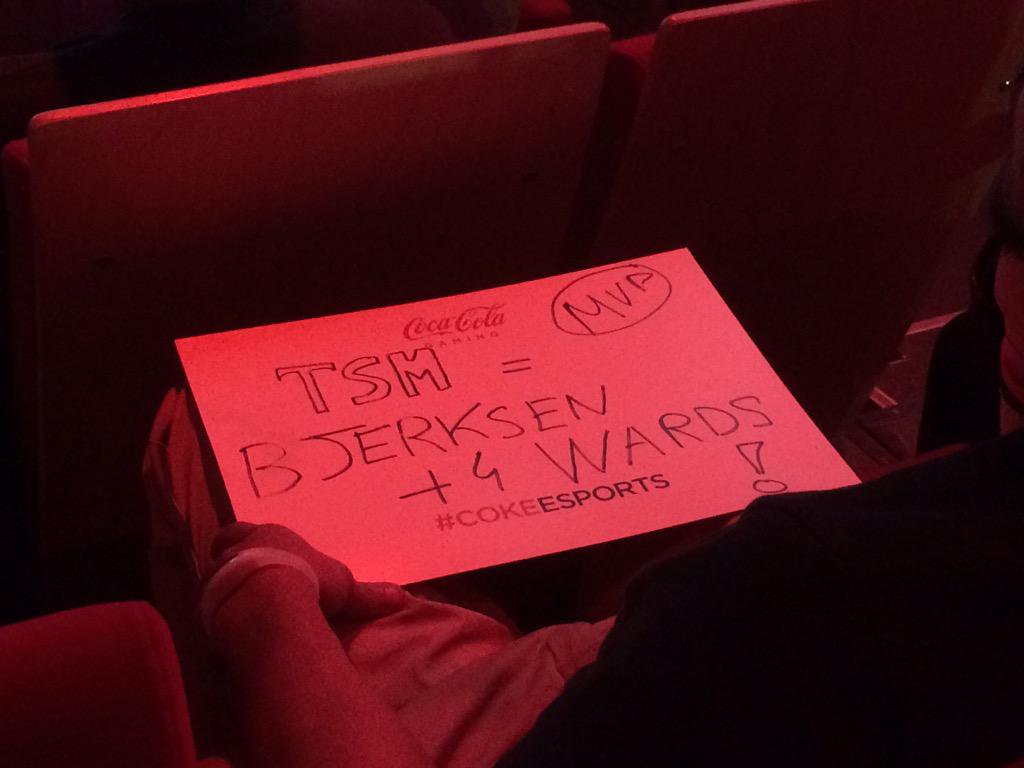 Coca-Cola
GAMING
MVP
TSM =
BJERKSEN
+ 4 WARDS !
#COKEESPORTS